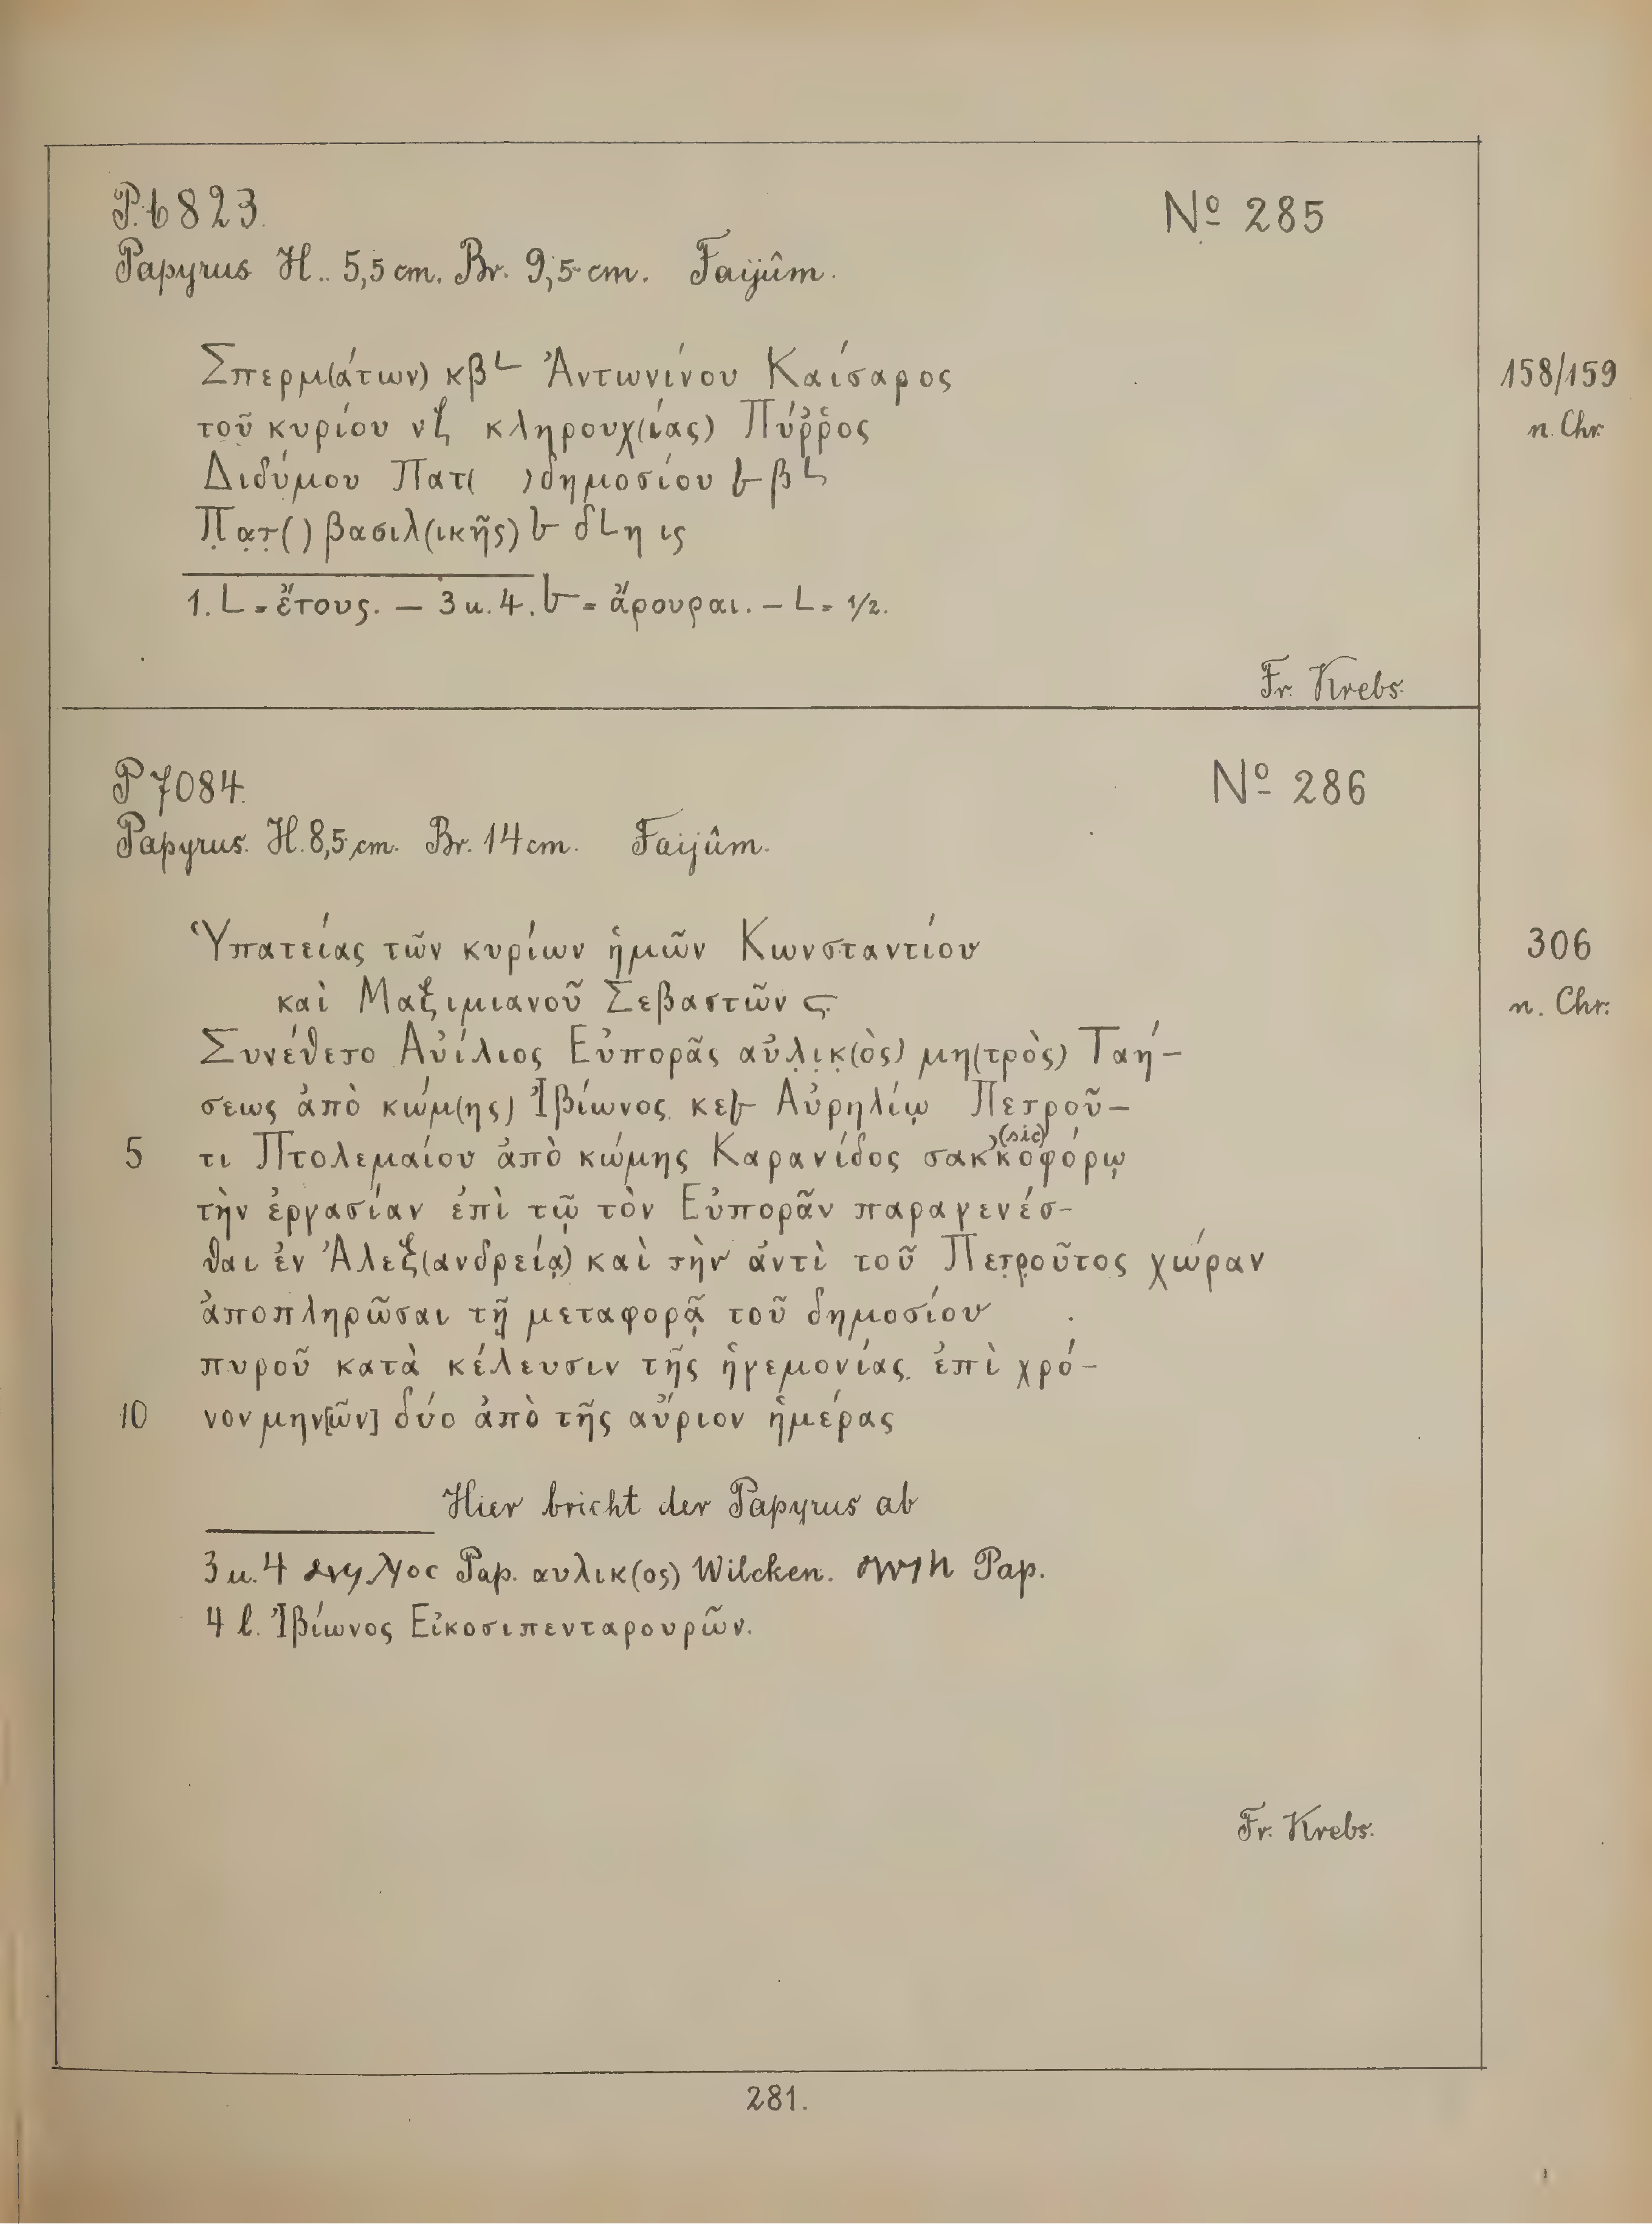 P. 6823. Nº 285
Papyrus H.. 5,5 cm. Br. 9,5 cm. Faijûm.
Σπερμ(άτων) κβ L Ἀντωνίνου Καίσαρος
158/159
τοῦ κυρίου νζ κληρουχ(ίας) Πύῤῥος
n. Chr.
Διδύμου Πατ( ) δημοσίου 𐅵 β L
Π̣ạτ̣( ) βασιλ(ικῆς) δ L η ις
1. L = ἔτους. — 3 u. 4. = ἄρουραι. — L = 1/2.
Fr. Krebs.
P 7084. Nº 286
Papyrus. H. 8,5 cm. Br. 14 cm. Faijûm.
Ὑπατείας τῶν κυρίων ἡμῶν Κωνσταντίου
306
καὶ Μαξιμιανοῦ Σεβαστῶν ϛ
n. Chr.
Συνέθετο Αὐίλιος Εὐπορᾶς αὐλ̣ι̣κ̣(ὸς) μη(τρὸς) Ταή-
σεως ἀπὸ κώμ(ης) Ἰβίωνος κε Αὐρηλίῳ Πετροῦ-
5 τι Πτολεμαίου ἀπὸ κώμης Καρανίδος σακ’κοφόρῳ (sic)
τὴν ἐργασίαν ἐπὶ τῷ τὸν Εὐπορᾶν παραγενέσ-
θαι ἐν Ἀλεξ(ανδρείᾳ) καὶ τὴν ἀντὶ τοῦ Πετ̣ρ̣οῦτος χώραν
ἀποπληρῶσαι τῇ μεταφορᾷ τοῦ δημοσίου
πυροῦ κατὰ κέλευσιν τῆς ἡγεμονίας ἐπὶ χρό-
10 νον μην[ῶν] δύο ἀπὸ τῆς αὔριον ἡμέρας
Hier bricht der Papyrus ab
3 u. 4 Pap. αυλικ(ος) Wilcken. Pap.
4 l. Ἰβίωνος Εἰκοσιπενταρουρῶν.
Fr. Krebs.
281.